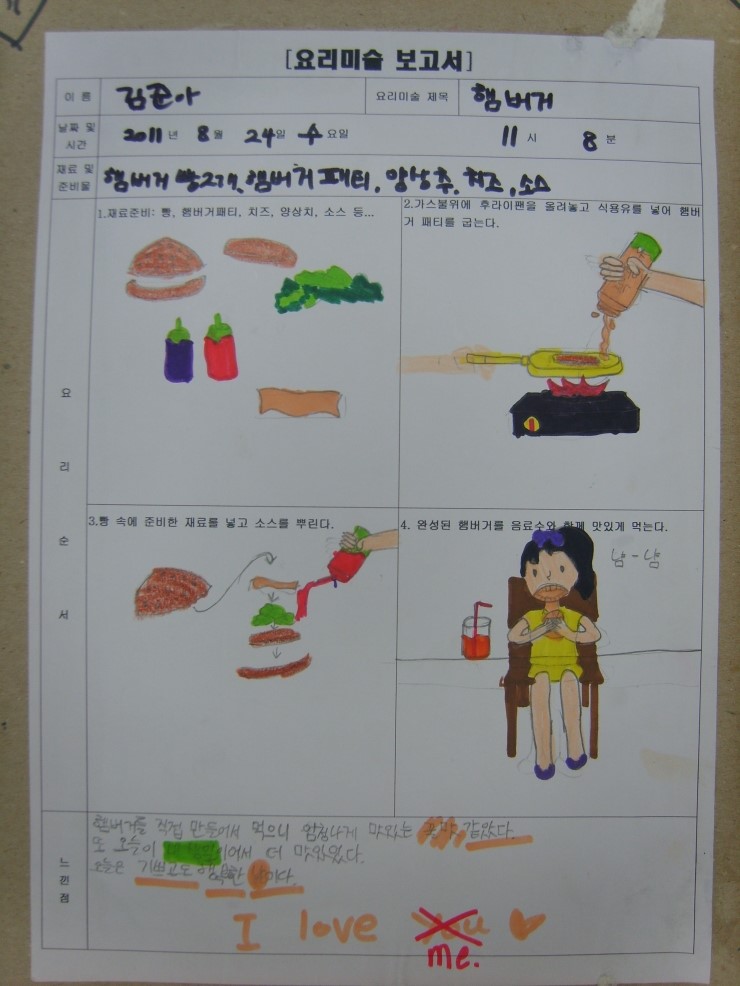 [요리미술 보고서]
이 름 김준아 요리미술 제목 햄버거
날짜 및 시간 2011년 8월 24일 수요일 11시 8분
재료 및 준비물 햄버거 빵2개, 햄버거 패티, 양상추, 치즈, 소스
요리순서
1.재료준비: 빵, 햄버거패티, 치즈, 양상치, 소스 등...
2.가스불위에 후라이팬을 올려놓고 식용유를 넣어 햄버
거 패티를 굽는다.
3.빵 속에 준비한 재료를 넣고 소스를 뿌린다.
4. 완성된 햄버거를 음료수와 함께 맛있게 먹는다.
냠-냠
느낀점
햄버거를 직접 만들어서 먹으니 엄청나게 맛있는 같았다.
또 오늘이 이어서 더 맛있었다.
오늘은 기쁘고도 행복한 날이다.
I love you
me.